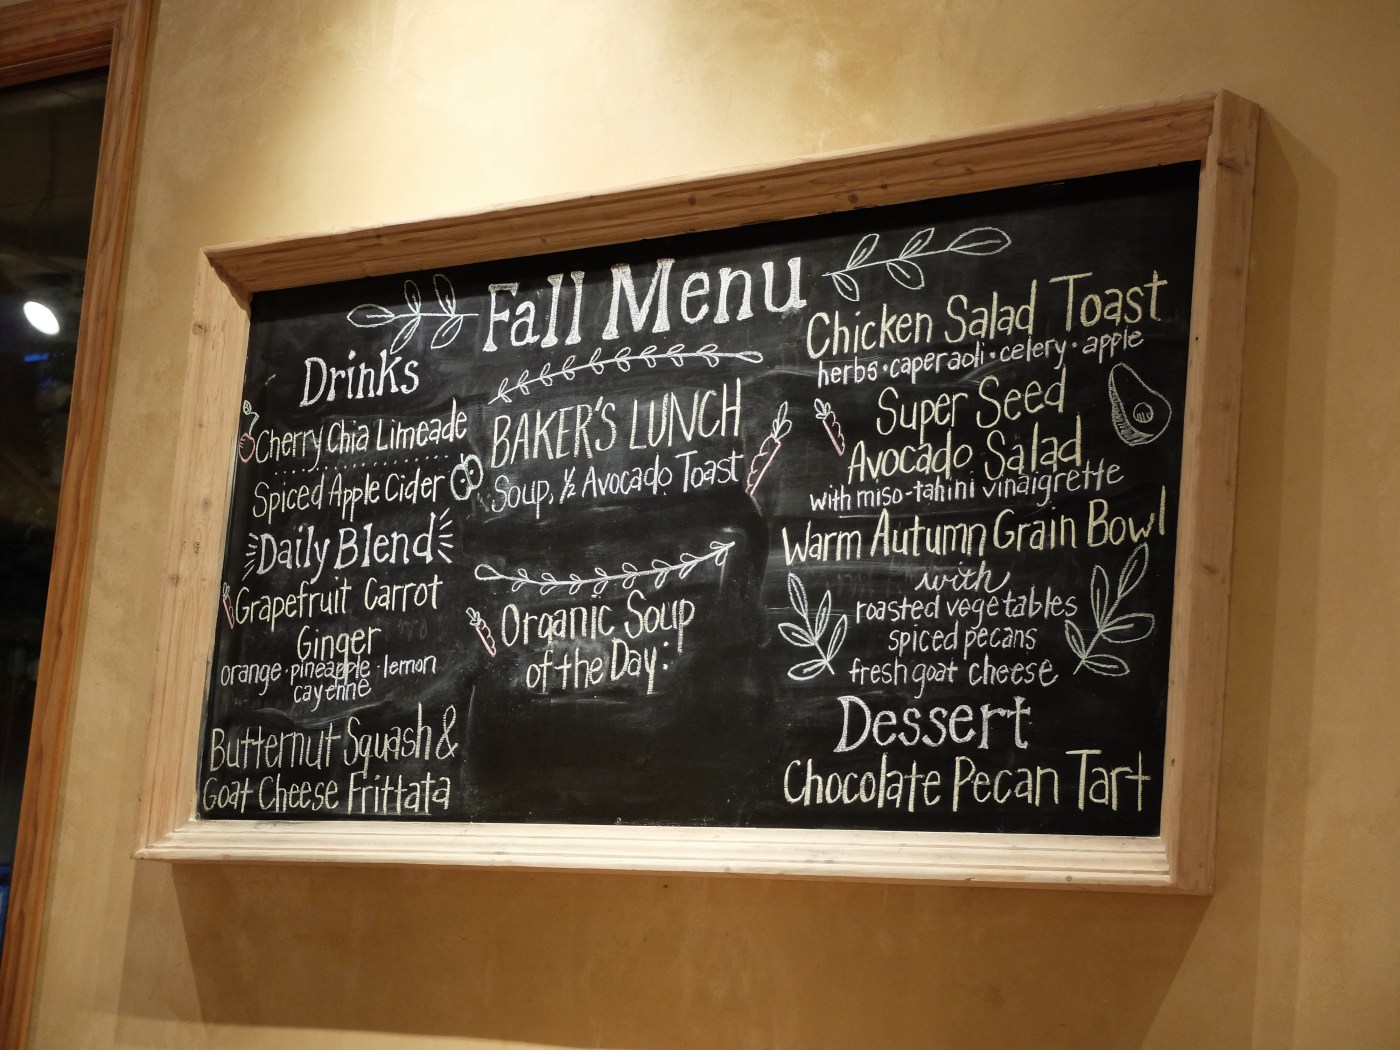 Fall Menu
Drinks
Cherry Chia Limeade
Spiced Apple Cider
Daily Blend
Grapefruit Carrot
Ginger
orange · pineapple · lemon
cayenne
Butternut Squash &
Goat Cheese Frittata
BAKER'S LUNCH
Soup, ½ Avocado Toast
Organic Soup
of the Day:
Chicken Salad Toast
herbs · caper aoli · celery · apple
Super Seed
Avocado Salad
with miso-tahini vinaigrette
Warm Autumn Grain Bowl
with
roasted vegetables
spiced pecans
fresh goat cheese
Dessert
Chocolate Pecan Tart